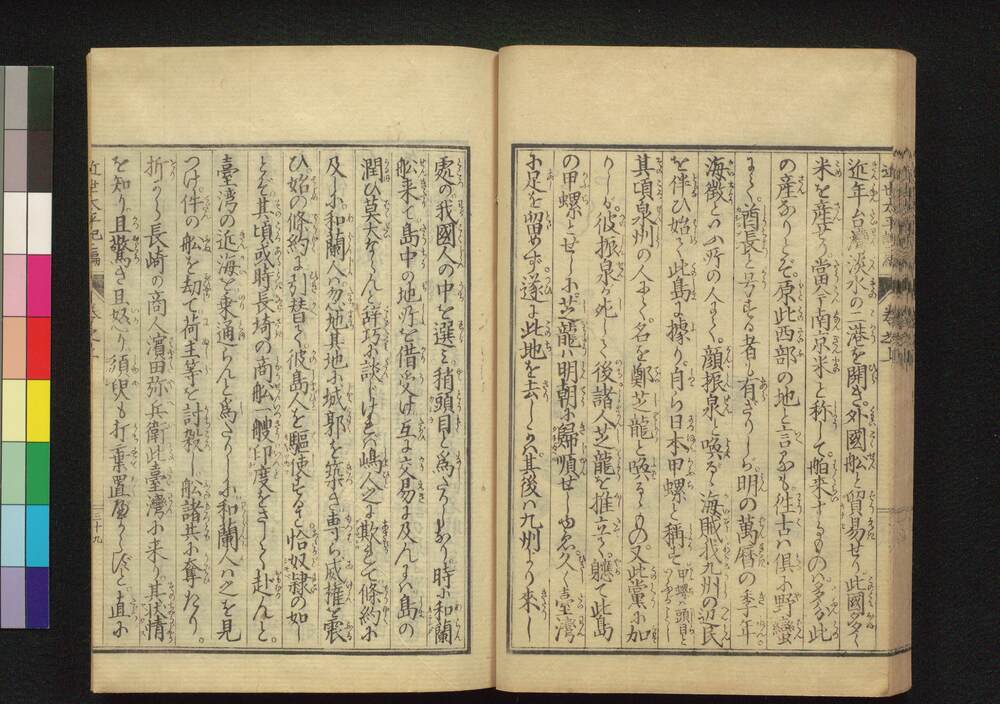 近年台湾淡水の二港を開き外國舩と貿易せり此國多く
米を産す當今南京米と称して舶来するものハ多く此
の産なりとぞ。原此西部の地と言ふも往古ハ倶に野蠻
にて。酋長と号する者も有ざりしが。明の萬暦の季年
海徴といふ所の人にて。顔振泉と喚なる海賊我九州の辺民
を伴ひ始て此島に據り。自ら日本甲螺と稱す甲螺ハ頭目と
其頃泉州の人にて。名を鄭芝龍と呼なるもの。又此黨に加
りしが。彼振泉が死して後諸人芝龍を推立て。軈て此島
の甲螺とせしに芝龍ハ明朝に歸順せしゆゑ久く臺湾
に足を留めず。遂に此地を去しかバ其後ハ九州より来し
處の我國人の中を選ミ稍頭目と為たりしなり。時に和蘭
舩来て島中の地所を借受け互に交易に及んにハ島の
潤ひ莫大ならんと辞巧に談じけれバ嶋人之に欺れて條約に
及しに和蘭人ハ忽地其地に城郭を築き専ら威權を震
ひ始の條約に引替て彼島人を驅使すること恰奴隷の如し
とぞ其頃或時長埼の商舩一艘印度をさして赴んと。
臺湾の近海を乗通らんと為たりしに和蘭人ハ之を見
つけ。件の舩を劫て荷主等を討殺し舩諸共に奪たり。
折から長崎の商人濱田弥兵衛此臺灣に来り。其状情
を知り且驚き且怒り。須臾も打棄置屬からずと直に
近世太平記二編
三十九